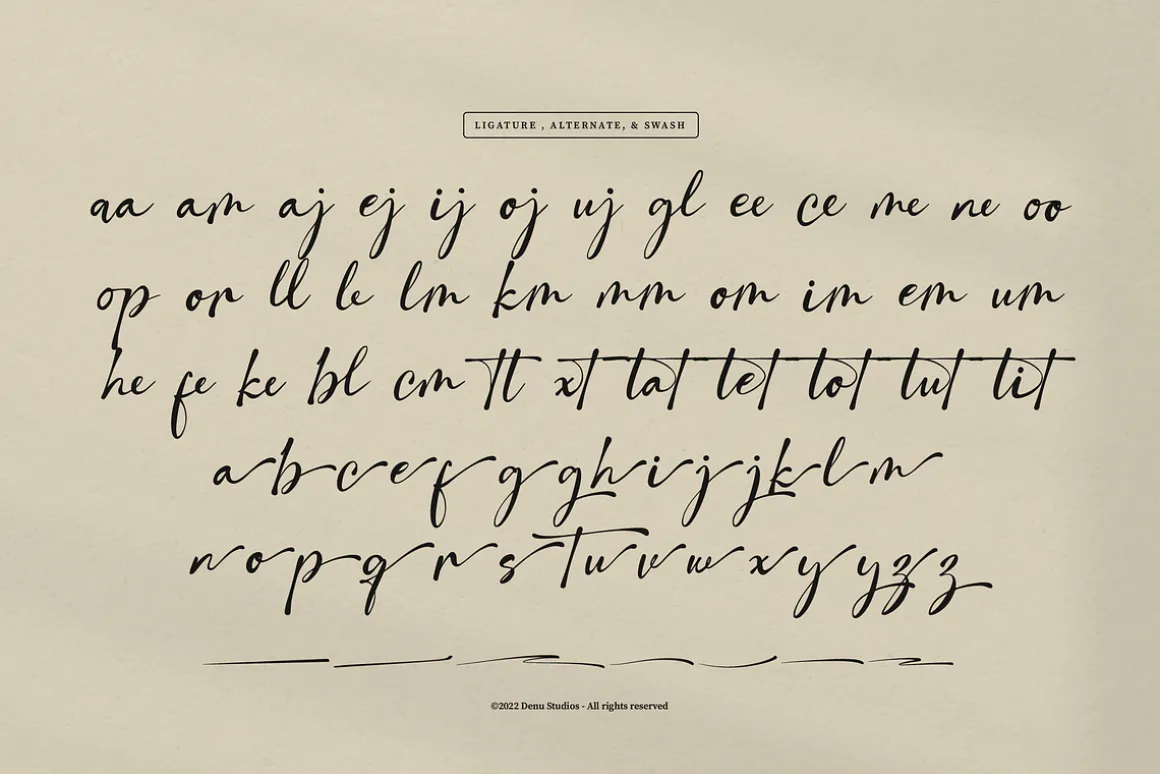 LIGATURE , ALTERNATE, & SWASH
aa am aj ej ij oj uj gl ee ce me ne oo
op or ll le lm km mm om im em um
he fe ke bl cm tt xt tat tet tot tut tit
a b c e f g g h i j j k l m
n o p q r s t u v w x y y z z
©2022 Denu Studios - All rights reserved